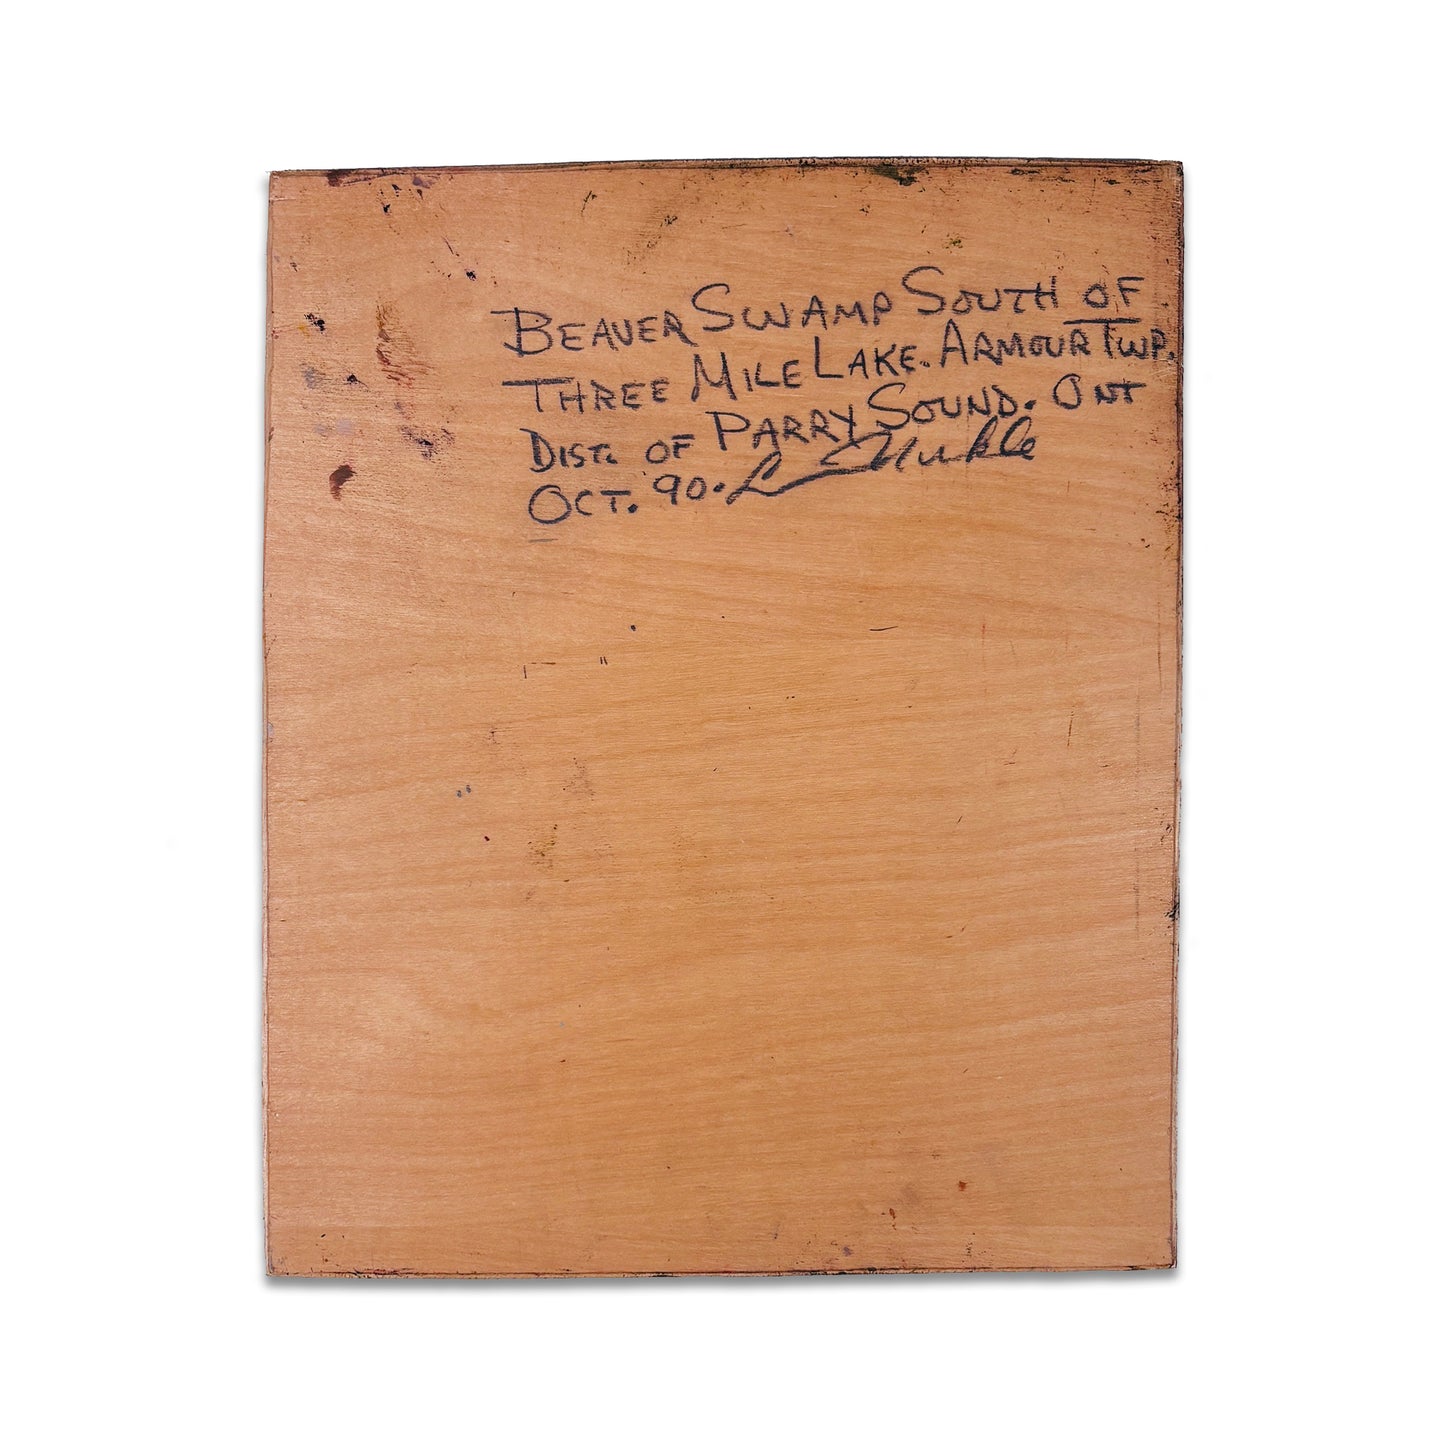 BEAVER SWAMP SOUTH OF
THREE MILE LAKE. ARMOUR TWP.
DIST. OF PARRY SOUND. ONT
OCT. '90. L